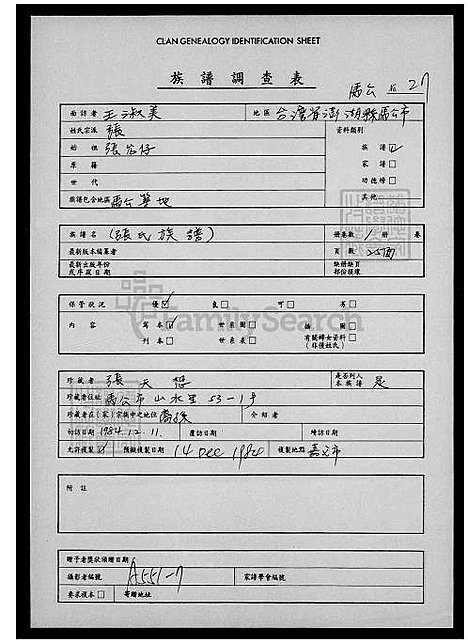 CLAN GENEALOGY IDENTIFICATION SHEET
族譜調查表
馬公 27
面訪者 王淑美 地區 台灣省澎湖縣馬公市
姓氏宗派 張 資料類別
始祖 張公仔 族譜☑
原籍 家譜□
世代 功德榜□
族譜包含地區 馬公等地 其他
族譜名 (張氏族譜) 冊卷數 1 冊 卷
最新版本編纂者 頁數 25面
最新出版年份或序跋日期 缺冊缺頁部份殘缘
保管狀況 優☑ 良□ 可□ 劣□
內容 寫本☑ 世系圖□ 插圖□
刊本□ 世系表□ 有關婦女資料□(非僅姓氏)
FamilySearch
珍藏者 張天 是否列入本族譜 是
珍藏者住址 馬公市山水里53-1号
珍藏者在(家)宗族中之地位 裔孫 介紹者
初訪日期 1984.12.11. 復訪日期 終訪日期
允許複製☑ 預擬複製日期 14 Dec 1984 複製地點 嘉义市
附註
贈予者獎狀頒贈日期
攝影者編號 A551-7 家譜學會編號
要求複本□ 寄贈地址